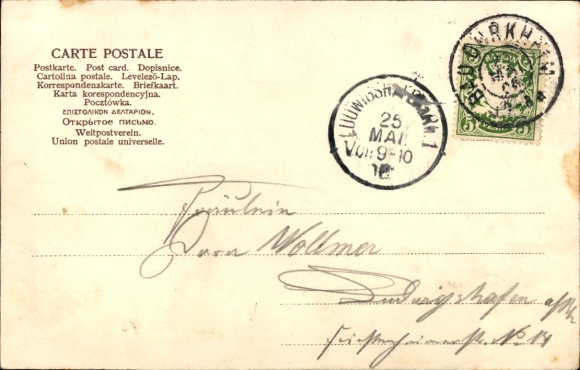 CARTE POSTALE
Postkarte. Post card. Dopisnice.
Cartolina postale. Levelező-Lap.
Korrespondenzkarte. Briefkaart.
Karta korespondencyjna.
Pocztówka.
ΕΠΙΣΤΟΛΙΚΟΝ ΔΕΛΤΑΡΙΟΝ.
Открытое письмо.
Weltpostverein.
Union postale universelle.
BAD DÜRKHEIM
5 5
LUDWIGSH
25
MAI
Vor. 9-10
Fräulein
Wollmer
Ludwigshafen a/Rh
No 14